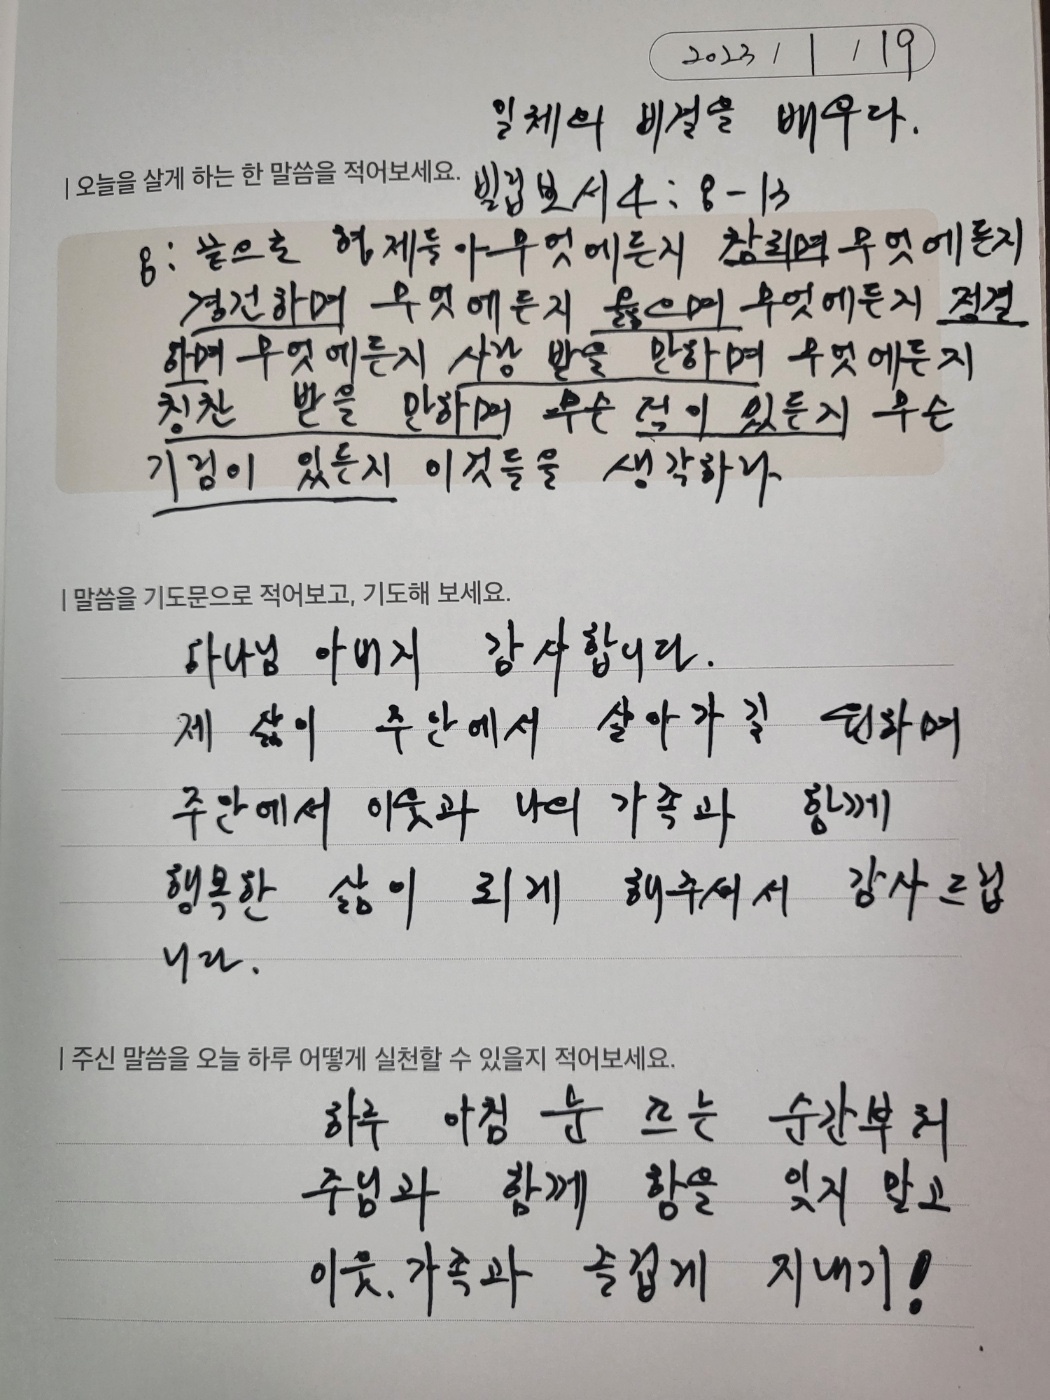 2023 / 1 / 19
일체의 비결을 배우다.
| 오늘을 살게 하는 한 말씀을 적어보세요.
빌립보서 4 : 8 - 13
8 : 끝으로 형제들아 무엇에든지 참되며 무엇에든지
경건하며 무엇에든지 옳으며 무엇에든지 정결
하며 무엇에든지 사랑 받을 만하며 무엇에든지
칭찬 받을 만하며 무슨 덕이 있든지 무슨
기림이 있든지 이것들을 생각하라
| 말씀을 기도문으로 적어보고, 기도해 보세요.
하나님 아버지 감사합니다.
제 삶이 주안에서 살아가길 원하며
주안에서 이웃과 나의 가족과 함께
행복한 삶이 되게 해주셔서 감사드립
니다.
| 주신 말씀을 오늘 하루 어떻게 실천할 수 있을지 적어보세요.
하루 아침 눈 뜨는 순간부터
주님과 함께 함을 잊지 말고
이웃, 가족과 즐겁게 지내기!